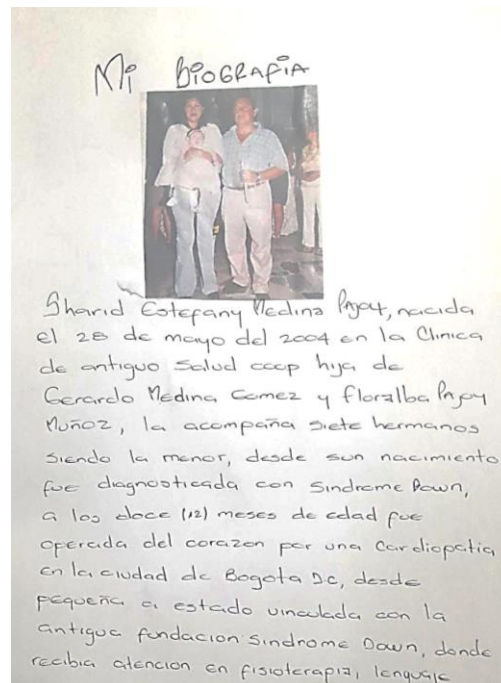 Mi BIOGRAFIA
Sharid Estefany Medina Pajoy, nacida
el 28 de mayo del 2004 en la Clinica
de antiguo Salud coop hija de
Gerardo Medina Gomez y floralba Pajoy
Muñoz, la acompaña siete hermanos
siendo la menor, desde sun nacimiento
fue diagnosticada con sindrome Down,
a los doce (12) meses de edad fue
operada del corazon por una Cardiopatia
en la ciudad de Bogota D.C, desde
pequeña a estado vinculada con la
antigua fundacion sindrome Down, donde
recibia atencion en fisioterapia, lenguaje